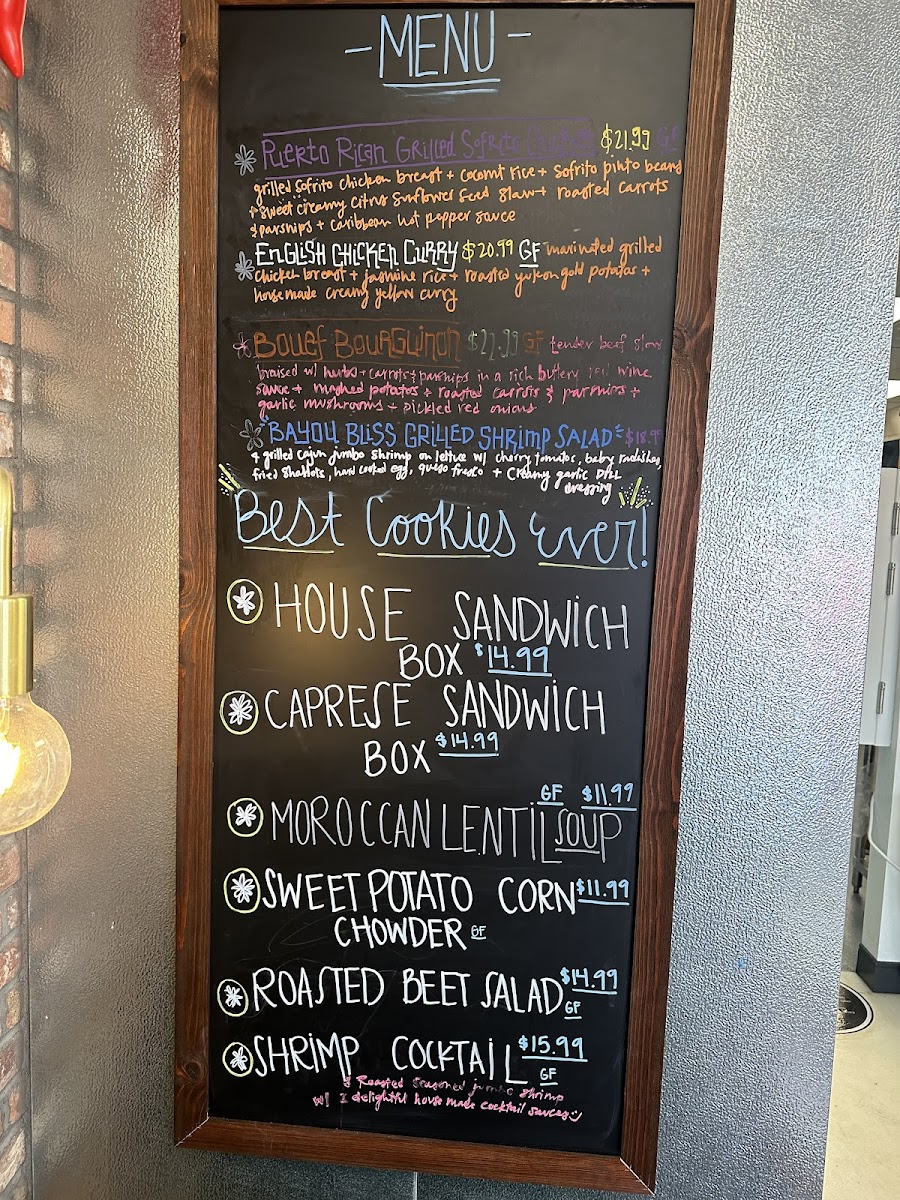 - MENU -
Puerto Rican Grilled Sofrito Chicken $21.99 GF
grilled Sofrito chicken breast + coconut rice + Sofrito pinto beans
+ sweet creamy citrus sunflower seed slaw + roasted carrots
& parsnips + caribbean hot pepper sauce
English Chicken Curry $20.99 GF marinated grilled
chicken breast + jasmine rice + roasted yukon gold potatoes +
house made creamy yellow curry
Bouef Bourguinon $22.99 GF tender beef slow
braised w/ herbs + carrots & parsnips in a rich buttery red wine
sauce + mashed potatoes + roasted carrots & parsnips +
garlic mushrooms + pickled red onions
"Bayou Bliss Grilled Shrimp Salad" $18.99
grilled cajun jumbo shrimp on lettuce w/ cherry tomatoes, baby radishes,
fried shallots, hard cooked egg, queso fresco + creamy garlic DILL
dressing
Best Cookies Ever!
HOUSE SANDWICH
BOX $14.99
CAPRESE SANDWICH
BOX $14.99
GF $11.99
MOROCCAN LENTIL SOUP
SWEET POTATO CORN $11.99
CHOWDER GF
ROASTED BEET SALAD $14.99
GF
SHRIMP COCKTAIL $15.99
GF
Roasted seasoned jumbo shrimp
w/ 2 delightful house made cocktail sauces